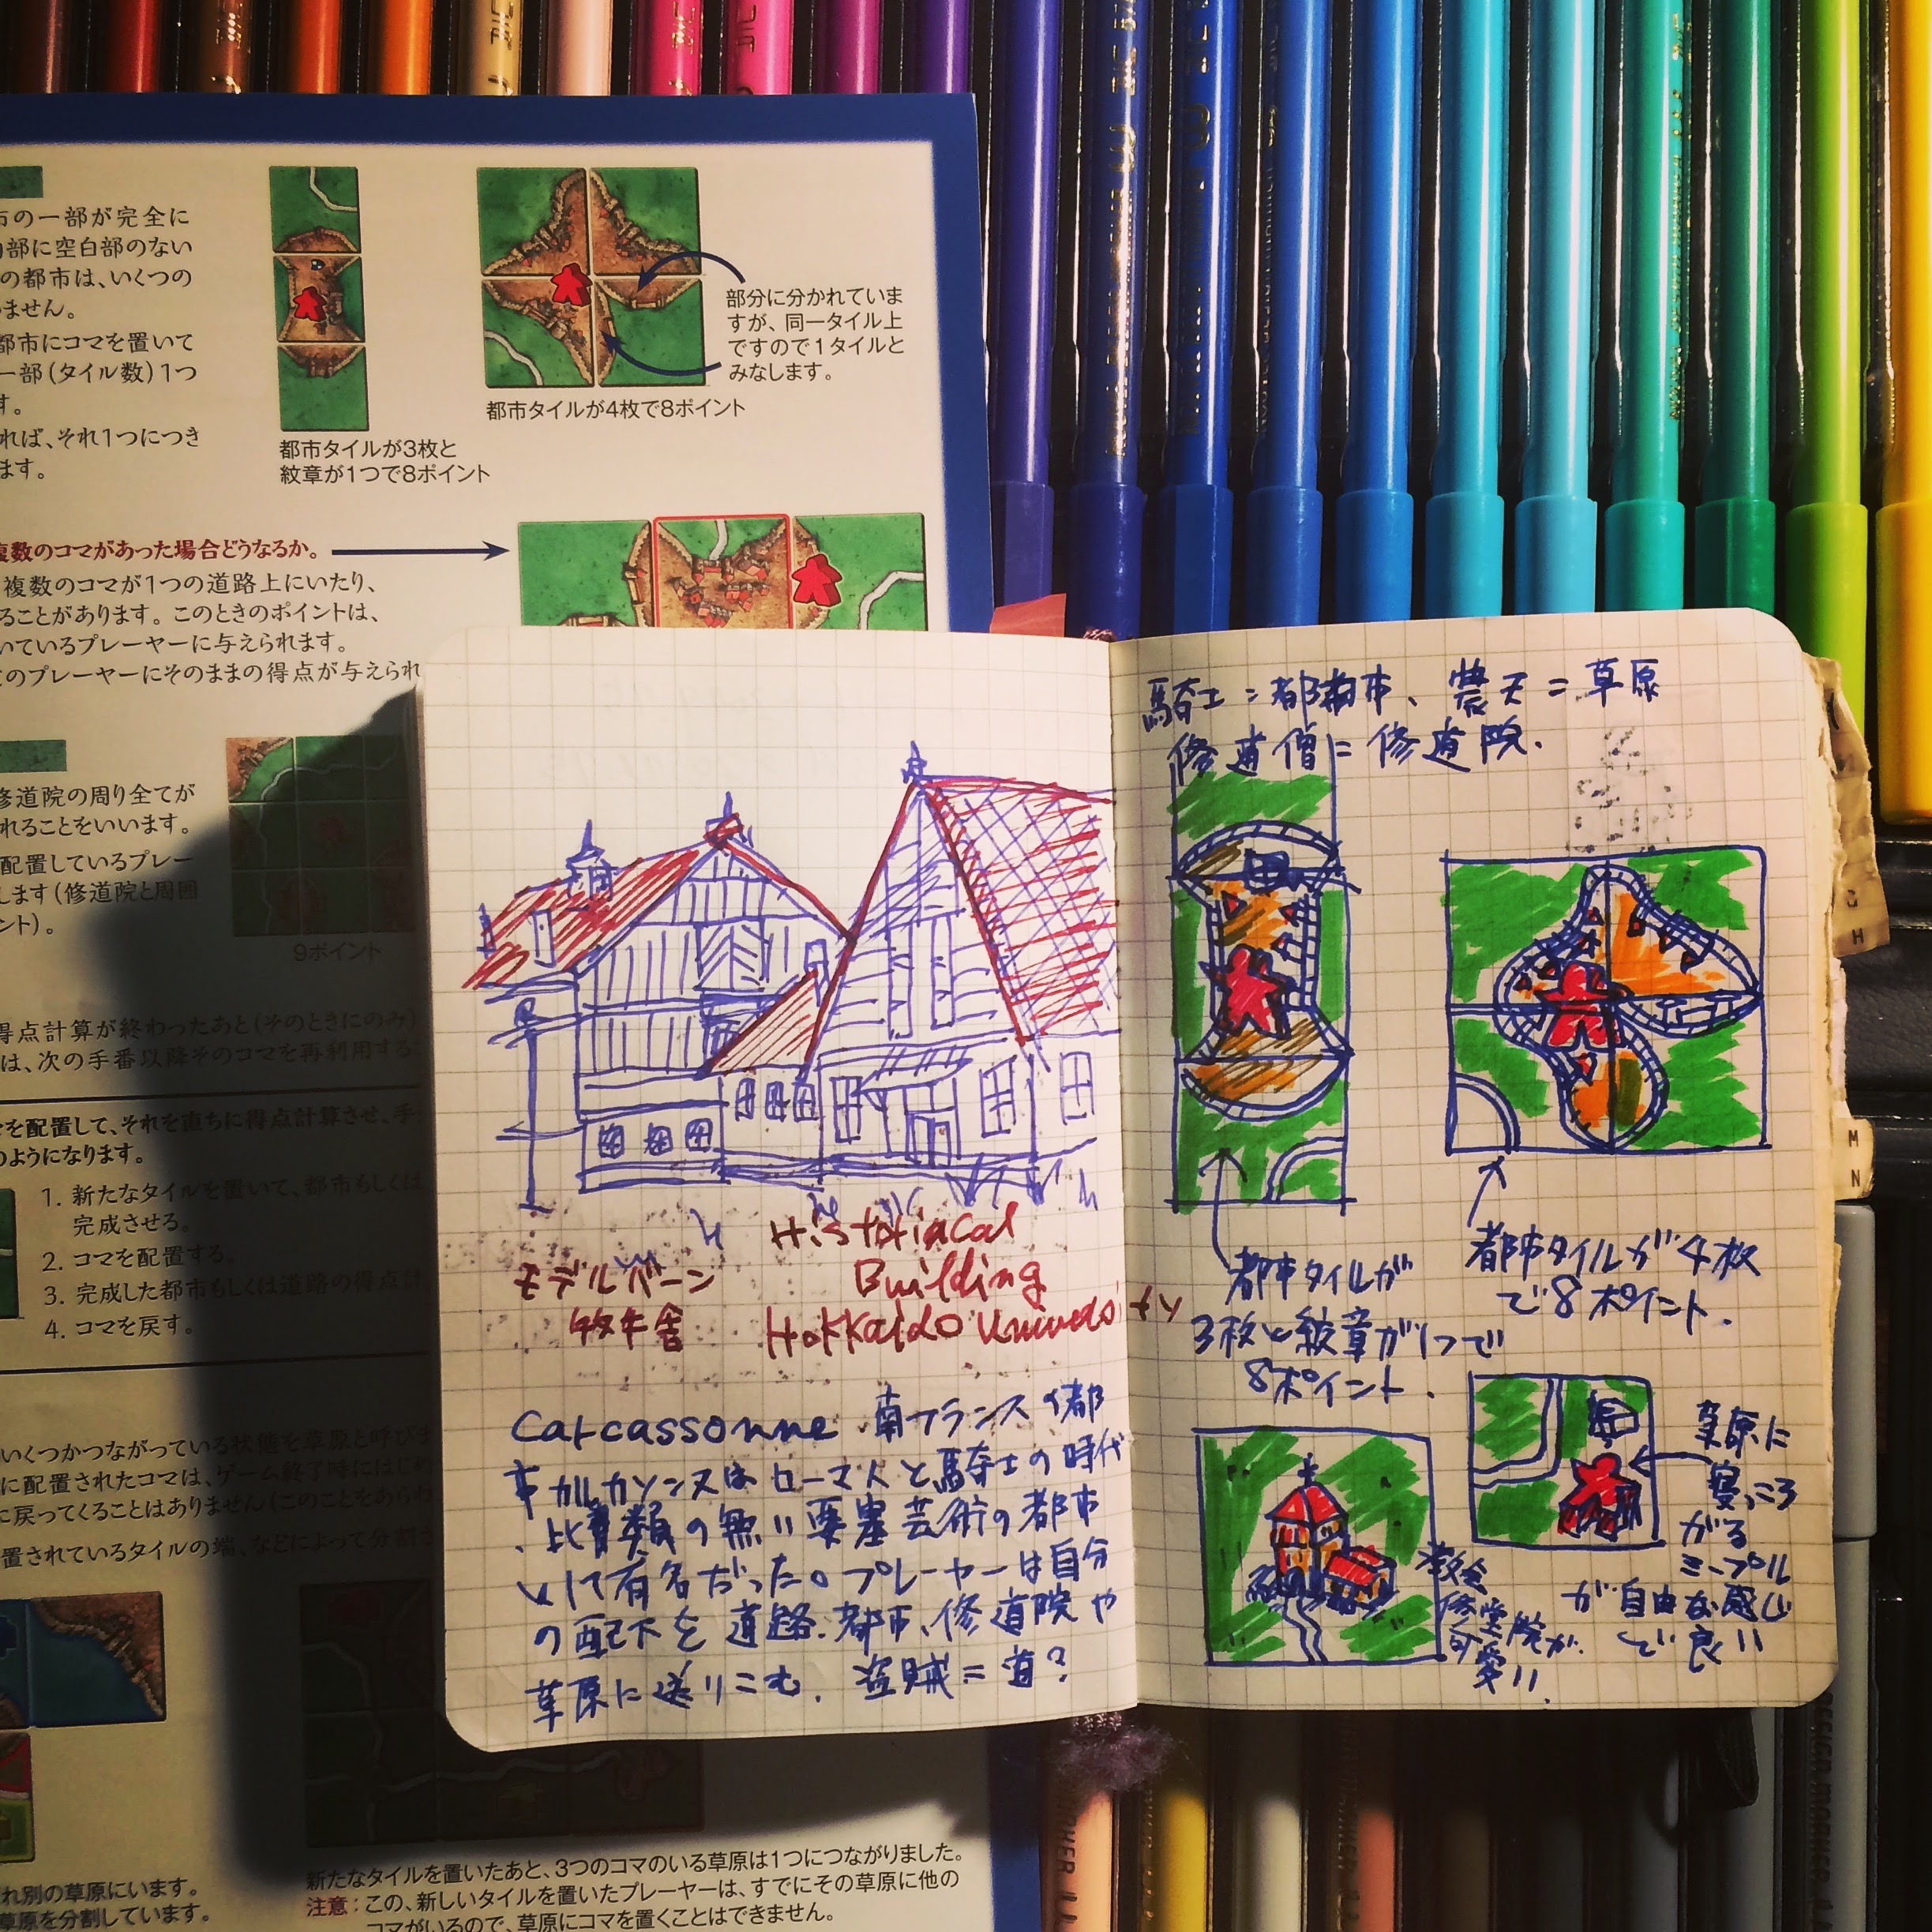 市の一部が完全に
部に空白部のない
の都市は、いくつの
ません。
都市にコマを置いて
一部(タイル数)1つ
す。
れば、それ1つにつき
ます。
部分に分かれていま
すが、同一タイル上
ですので1タイルと
みなします。
都市タイルが4枚で8ポイント
都市タイルが3枚と
紋章が1つで8ポイント
複数のコマがあった場合どうなるか。
複数のコマが1つの道路上にいたり、
ることがあります。このときのポイントは、
いているプレーヤーに与えられます。
のプレーヤーにそのままの得点が与えられ
修道院の周り全てが
れることをいいます。
配置しているプレー
します(修道院と周囲
ント)。
9ポイント
得点計算が終わったあと(そのときにのみ)
は、次の手番以降そのコマを再利用する
を配置して、それを直ちに得点計算させ、手
のようになります。
1. 新たなタイルを置いて、都市もしくは
完成させる。
2. コマを配置する。
3. 完成した都市もしくは道路の得点計
4. コマを戻す。
いくつかつながっている状態を草原と呼びま
に配置されたコマは、ゲーム終了時にはじめ
に戻ってくることはありません(このことをあらわ
置されているタイルの端、などによって分割さ
れ別の草原にいます。
草原を分割しています。
新たなタイルを置いたあと、3つのコマのいる草原は1つにつながりました。
注意:この、新しいタイルを置いたプレーヤーは、すでにその草原に他の
コマがいるので、草原にコマを置くことはできません。
モデルバーン
牧牛舎
Historiacal
Building
Hokkaido University
Carcassonne 南フランスの都
市カルカソンヌはローマ人と騎士の時代
、比類の無い要塞芸術の都市
として有名だった。プレーヤーは自分
の配下を道路、都市、修道院や
草原に送りこむ。盗賊=道?
騎士=都市、農夫=草原
修道僧=修道院.
都市タイルが
3枚と紋章が1つで
8ポイント.
都市タイルが4枚
で8ポイント.
草原に
寝っころ
がる
ミープル
が自由な感じ
で良い
教会
修堂院が
可愛い.
G
H
M
N